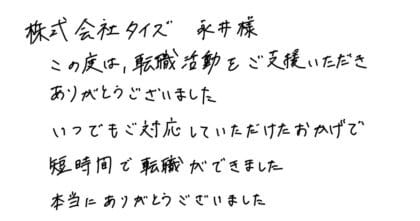 株式会社タイズ　永井様
この度は,転職活動をご支援いただき
ありがとうございました
いつでもご対応していただけたおかげで
短時間で転職ができました
本当にありがとうございました